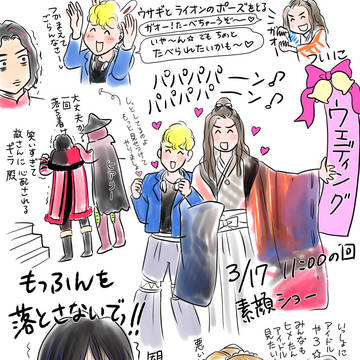 つかまえて
ごらんなさ〜
ウサギとライオンのポーズをとる
ガオー!たーべちゃうぞ〜♡
いや〜ん☆でもちのと
たべられたいかも〜♡
ガオー
ついに
パパパパーン♪
パパパパーン♪
ウェディング
大丈夫か
一回
落ち着け
ヒアリー
しっとしてるのよ
もっとやりましょ♡
笑いすぎて
敵さんに心配される
ギラ殿
3/17 11:00の回
素顔ショー
もっふんを
落とさないで!!
いっしょに
アイドル
やろ
みんなも
ヒメたん
アイドル
見たい